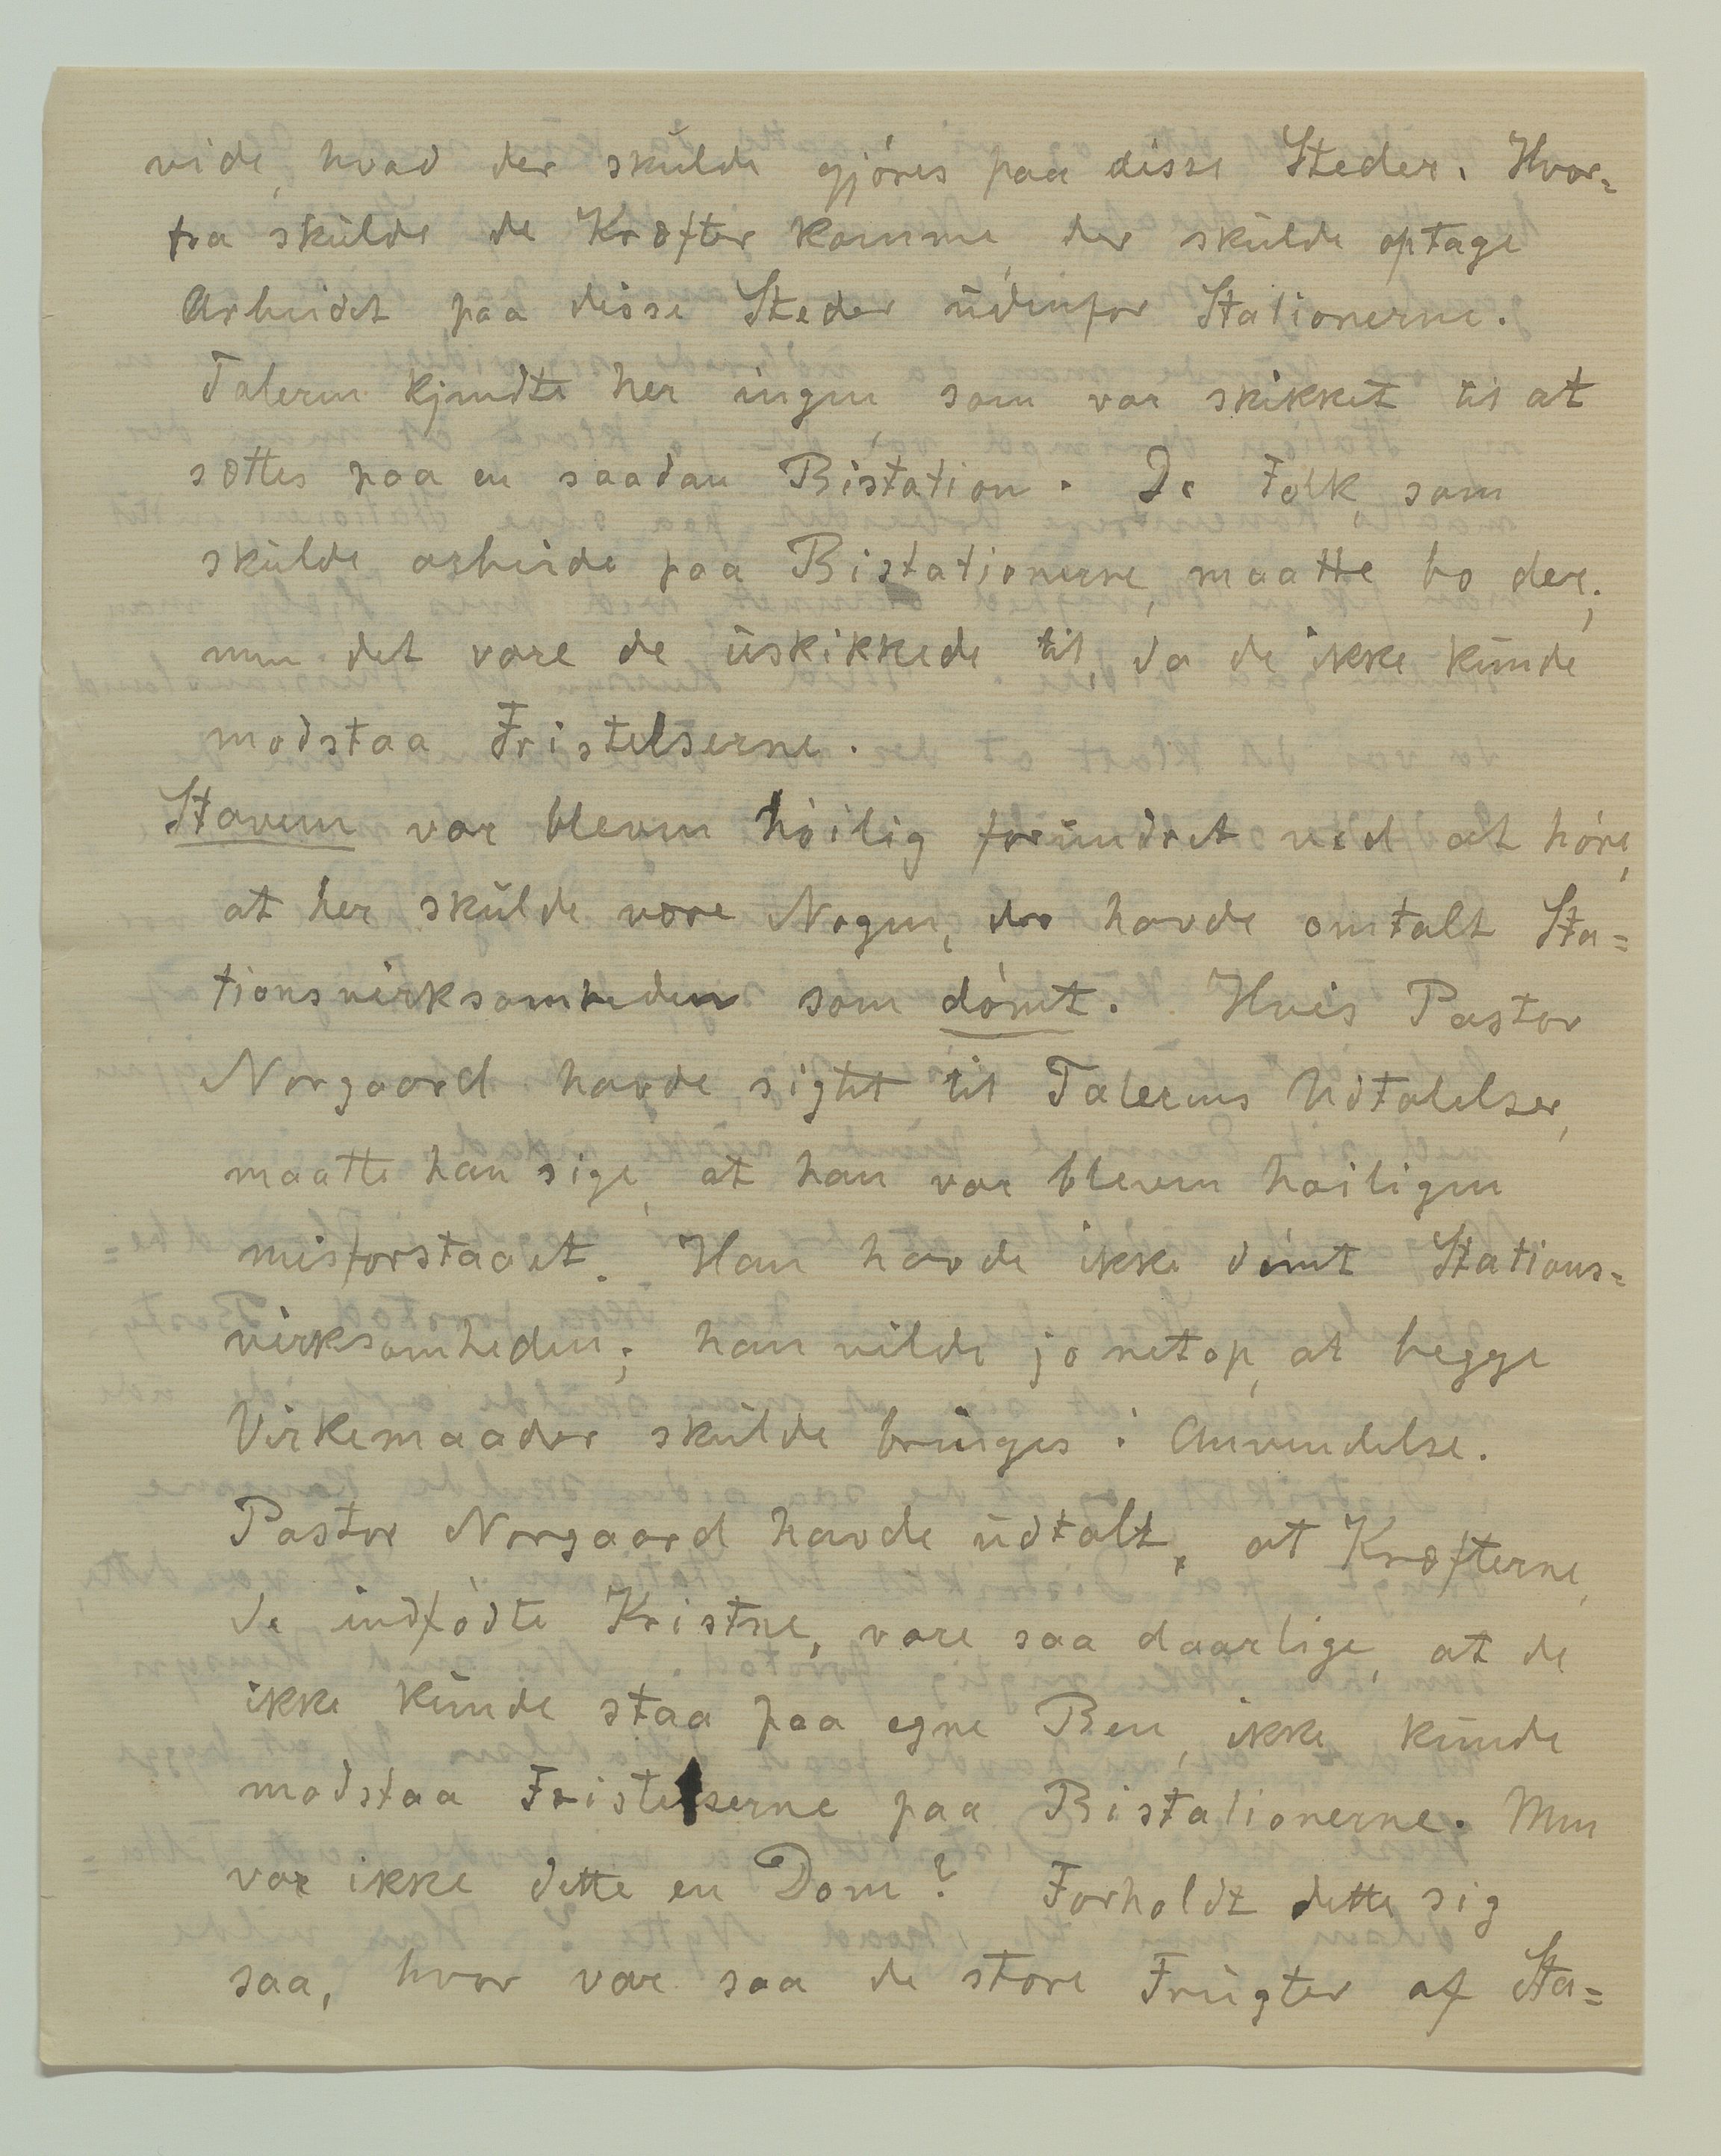 vide, hvad der skulde gjöres paa disse Steder. Hvor=
fra skulde de Kræfter komme, der skulde optage
Arbeidet paa disse Steder udenfor Stationerne.
Taleren kjendte her ingen, som var skikket til at
sættes paa en saadan Bistation. De Folk, som
skulde arbeide paa Bistationerne, maatte bo der;
men det vare de uskikkede til, da de ikke kunde
modstaa Fristelserne.
Stavem var bleven höilig forundret ved at höre,
at her skulde være Nogen, der havde omtalt Sta=
tionsvirksomheden som dömt. Hvis Pastor
Norgaard havde sigtet til Talerens Udtalelser,
maatte han sige, at han var bleven höiligen
misforstaaet. Han havde ikke dömt Stations=
virksomheden; han vilde jo netop, at begge
Virkemaader skulde bringes i Anvendelse.
Pastor Norgaard havde udtalt, at Kræfterne,
de indfödte Kristne, vare saa daarlige, at de
ikke kunde staa paa egne Ben, ikke kunde
modstaa Fristelserne paa Bistationerne. Men
var ikke dette en Dom? Forholdt dette sig
saa, hvor var saa de store Frugter af Sta=